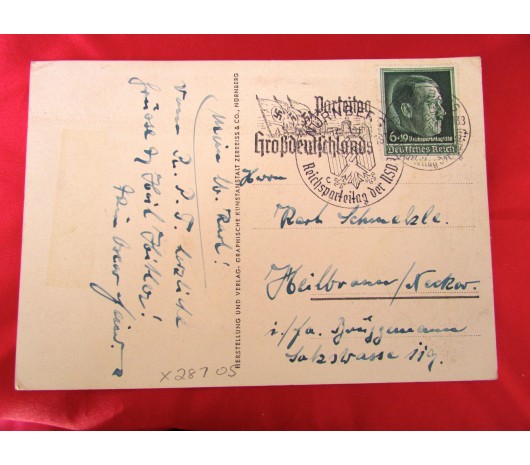 Mein lb. Karl!
Vom R. P. T. herzliche
Grüße & Heil Hitler!
Dein
HERSTELLUNG UND VERLAG: GRAPHISCHE KUNSTANSTALT ZERREISS & CO., NÜRNBERG
Parteitag
Großdeutschlands
NÜRNBERG
Reichsparteitag der NSDAP
6+19 Reichsparteitag 1938
Deutsches Reich
Herrn
Karl Schmelzle.
Heilbronn/Neckar.
i/fa. Brüggemann
Salzstrasse 119.
X 287 05